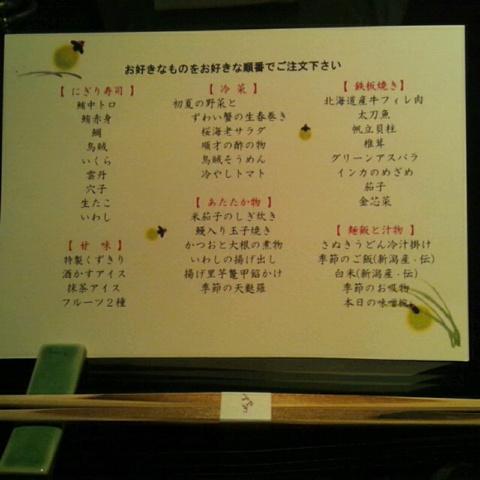 お好きなものをお好きな順番でご注文下さい
【 にぎり寿司 】
鮪中トロ
鮪赤身
鯛
烏賊
いくら
雲丹
穴子
生たこ
いわし
【 甘　味 】
特製くずきり
酒かすアイス
抹茶アイス
フルーツ２種
【 冷　菜 】
初夏の野菜と
ずわい蟹の生春巻き
桜海老サラダ
順才の酢の物
烏賊そうめん
冷やしトマト
【 あたたか物 】
米茄子のしぎ炊き
鰻入り玉子焼き
かつおと大根の煮物
いわしの揚げ出し
揚げ里芋鼈甲餡かけ
季節の天麩羅
【 鉄板焼き 】
北海道産牛フィレ肉
太刀魚
帆立貝柱
椎茸
グリーンアスパラ
インカのめざめ
茄子
金芯菜
【 麺飯と汁物 】
さぬきうどん冷汁掛け
季節のご飯(新潟産・伝)
白米(新潟産・伝)
季節のお吸物
本日の味噌椀